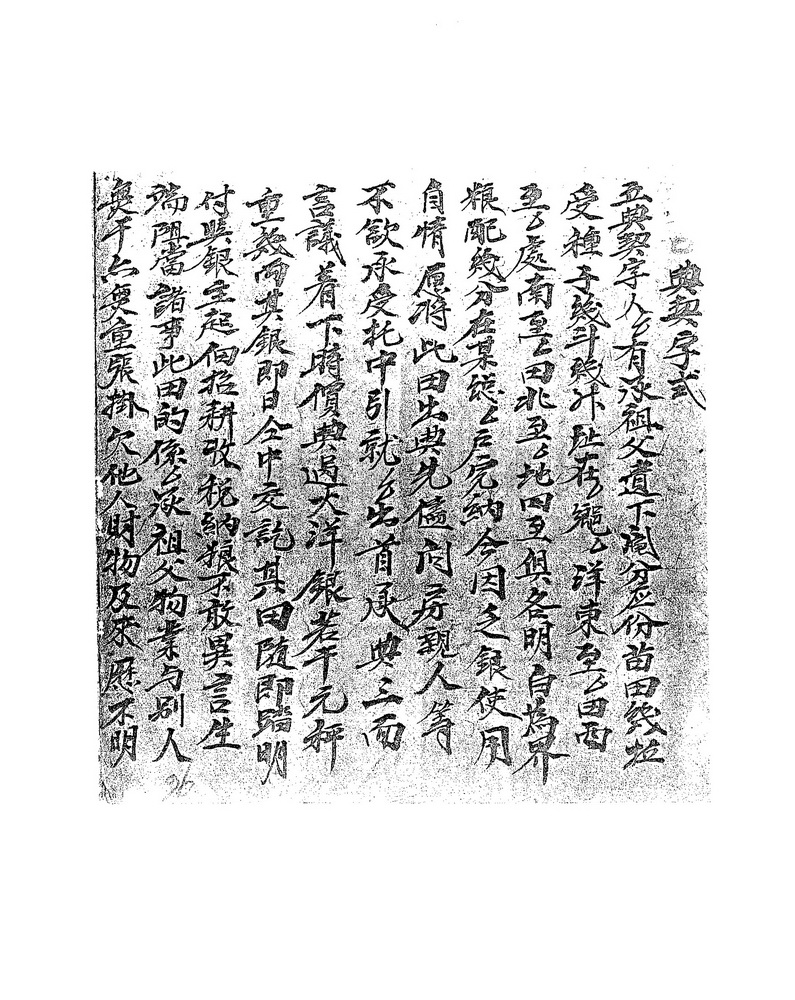 典契字式
立典契字人𠃊有承祖父遺下鬮分应份苗田幾坵
受種子幾斗幾升址在𠃊鄉𠃊洋東至𠃊田西
至𠃊處南至𠃊田北至𠃊地四至俱各明白為界
粮配幾分在某𠃊后完納今因乏銀使用
自情愿將此田出典先儘问房親人等
不欲承受托中引就𠃊出首承典三面
言議着下時價典過大洋銀若干元秤
重幾两其銀即日仝中交訖其田随即踏明
付與銀主起佃招耕收税納粮不敢異言生
端阻當諸事此田的係𠃊承祖父物業与别人
無干亦無重張掛欠他人財物及來歷不明